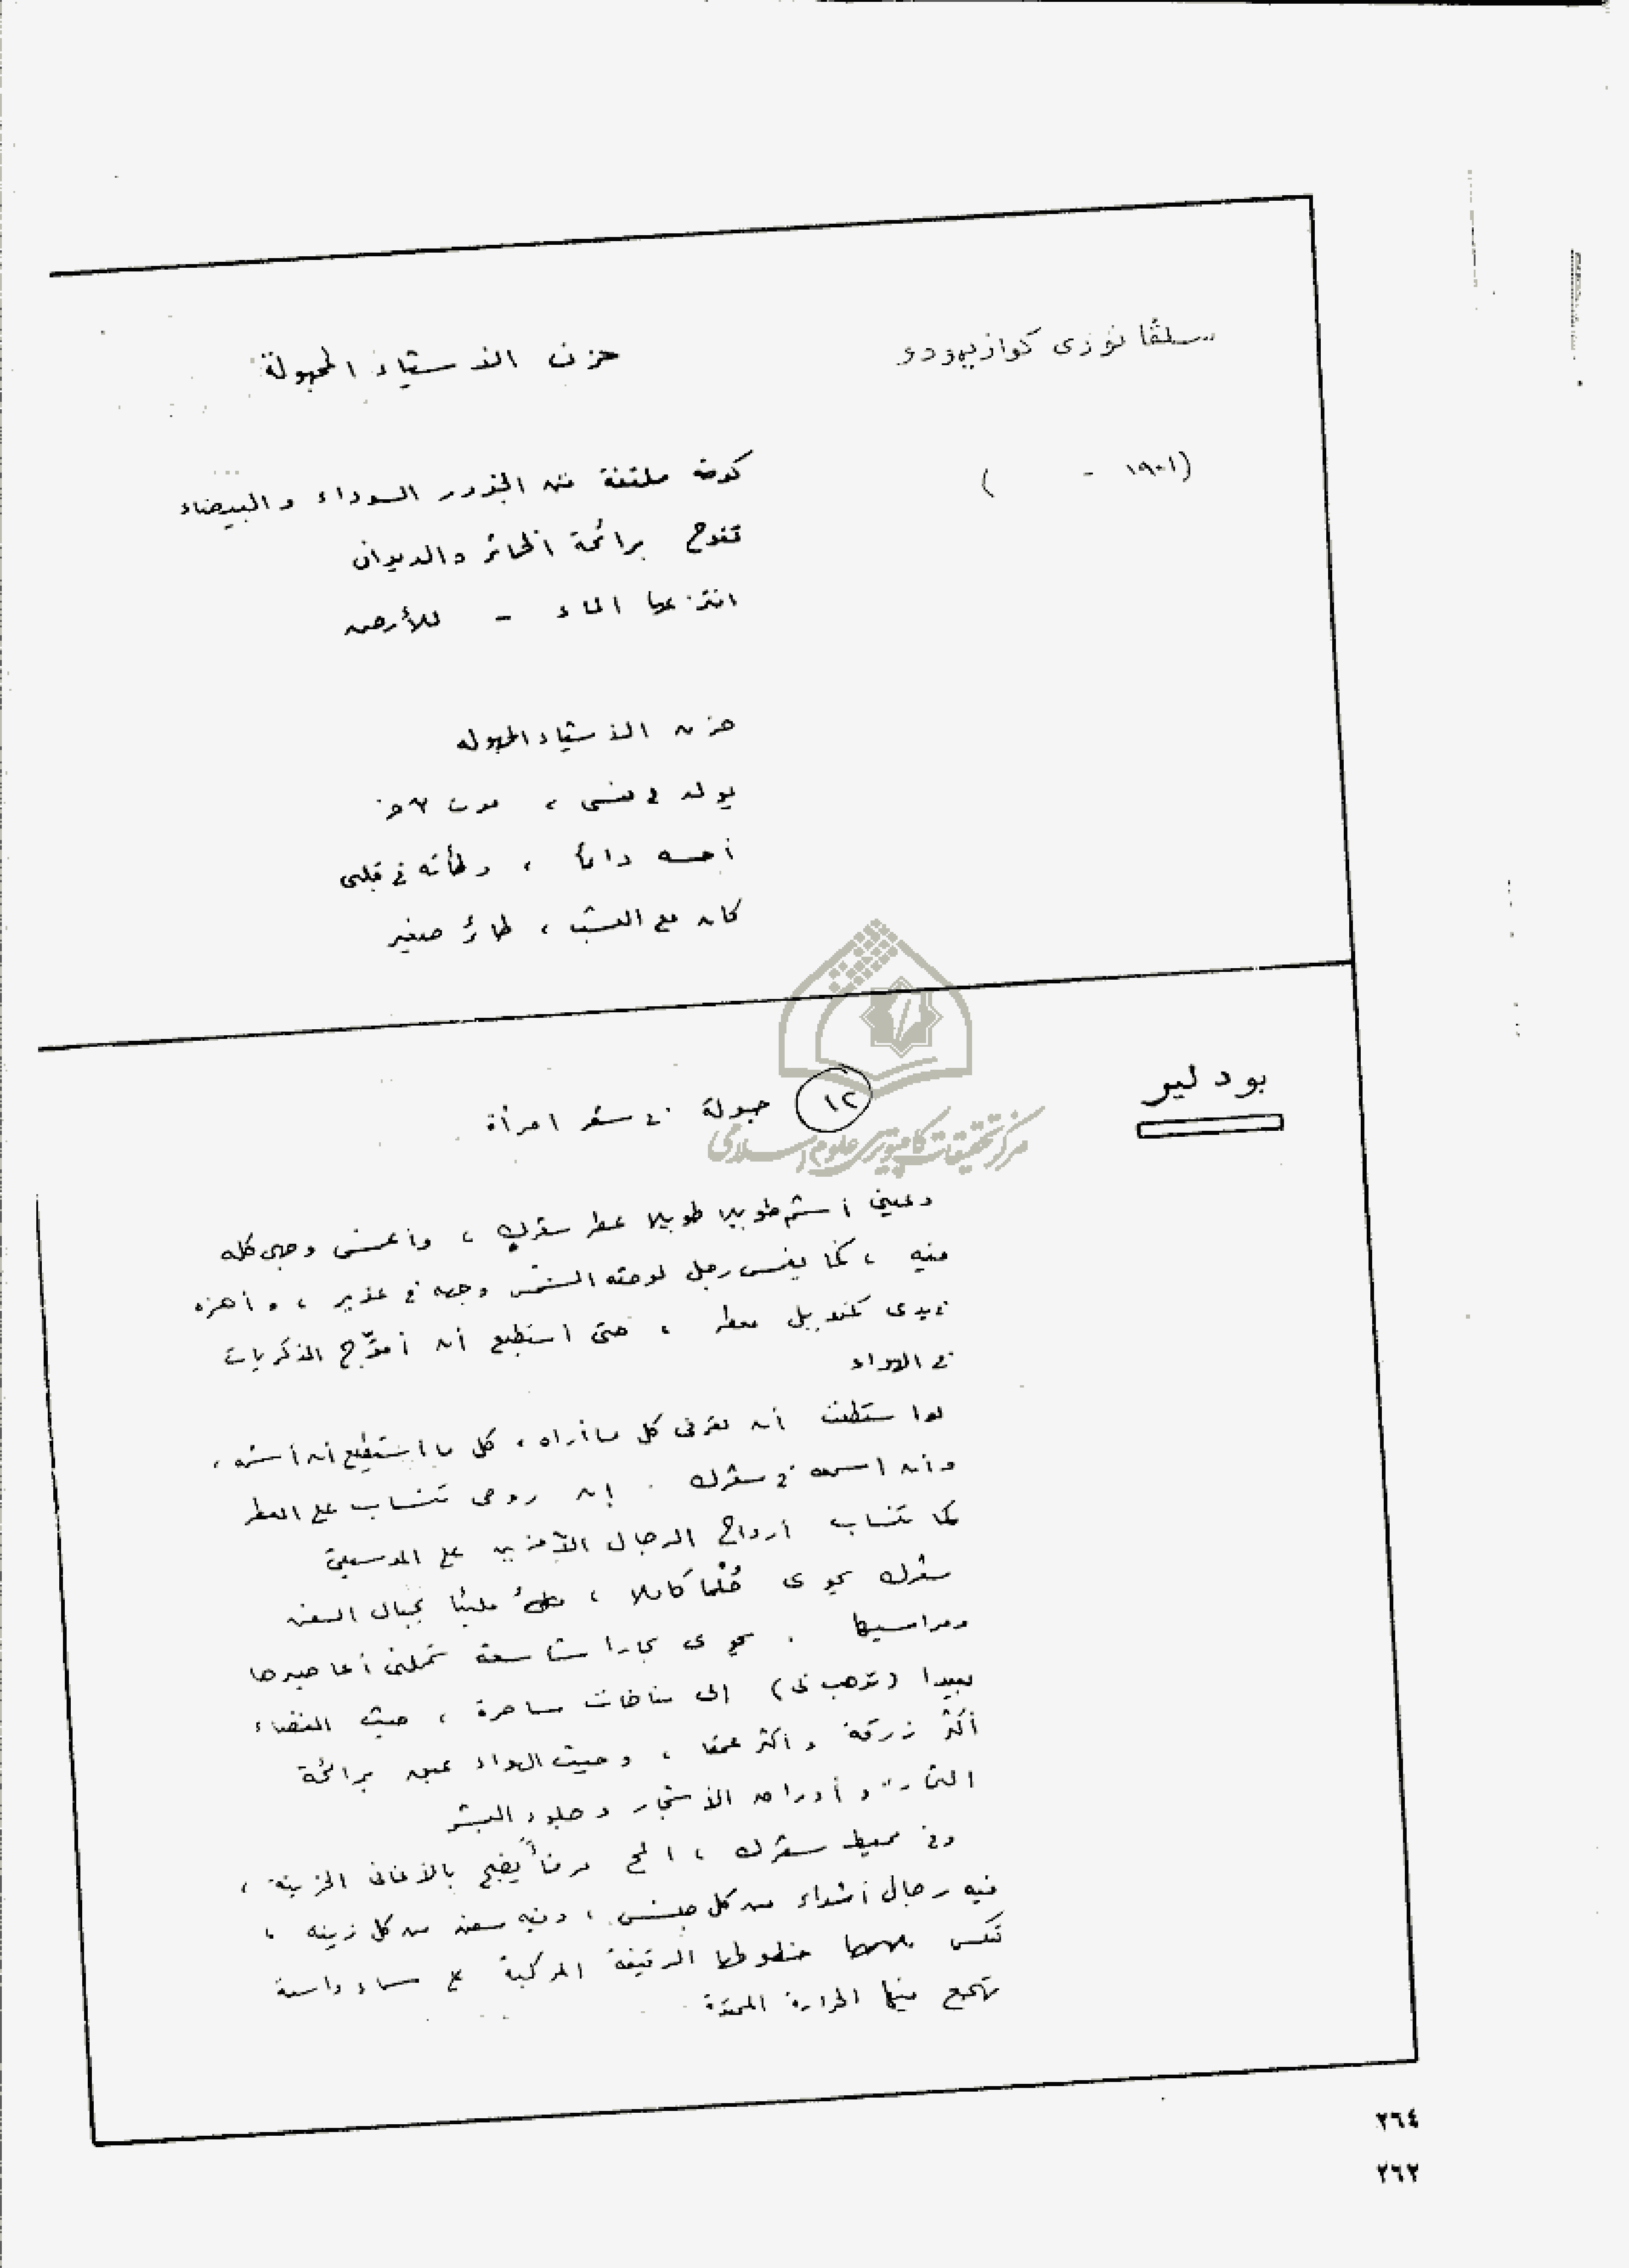 سلڤاتوزى كوازيمودو
حزن الأشياء المجهولة
(١٩٠١ - )
كومة ملتفة من الجذور السوداء والبيضاء
تفوح برائحة الخمائر والديدان
انتزعها الماء - للأرض
حزن الأشياء المجهولة
يولد فى نفسى ، موت آخر
أحسه دائما ، وطأته فى قلبى
كان مع العشب ، طائر صغير
بودلير
١٢
جولة فى شعر امرأة
دعينى أشم طويلا طويلا عطر شعرك ، وأغمس وجهى كله
فيه ، كما يغمس رجل لوحته الشمس وجهه فى غدير ، وأهزه
بيدى كمنديل معطر ، حتى استطيع أن أموّج الذكريات
فى الهواء
لو استطعت أن تعرفى كل ما أراه ، كل ما استطيع أن أشمه ،
وأن اسمعه فى شعرك . إن روحى تنساب على العطر
كما تنساب أرواح الرجال الآخرين على الموسيقى
شعرك يحوى حُلْما كاملا ، مليئا بحبال السفن
ومراسيها . يحوى بحارا شاسعة تحملنى أعاصيرها
بعيدا (تذهب بى) إلى مناخات ساحرة ، حيث الفضاء
أكثر زرقة وأكثر عمقا ، وحيث الهواء عبق برائحة
الثمار وأوراق الأشجار وجلود البشر
وفى محيط شعرك ، المح مرفأ يضج بالأغانى الحزينة ،
فيه رجال أشداء من كل جنس ، وفيه سفن من كل زينة ،
تعكس خطوطها الرقيقة المركبة على سماء واسعة
تهجع فيها الحرارة الممتدة
٢٦٤
٢٦٢
مركز تحقيقات كامپيوترى علوم اسلامى